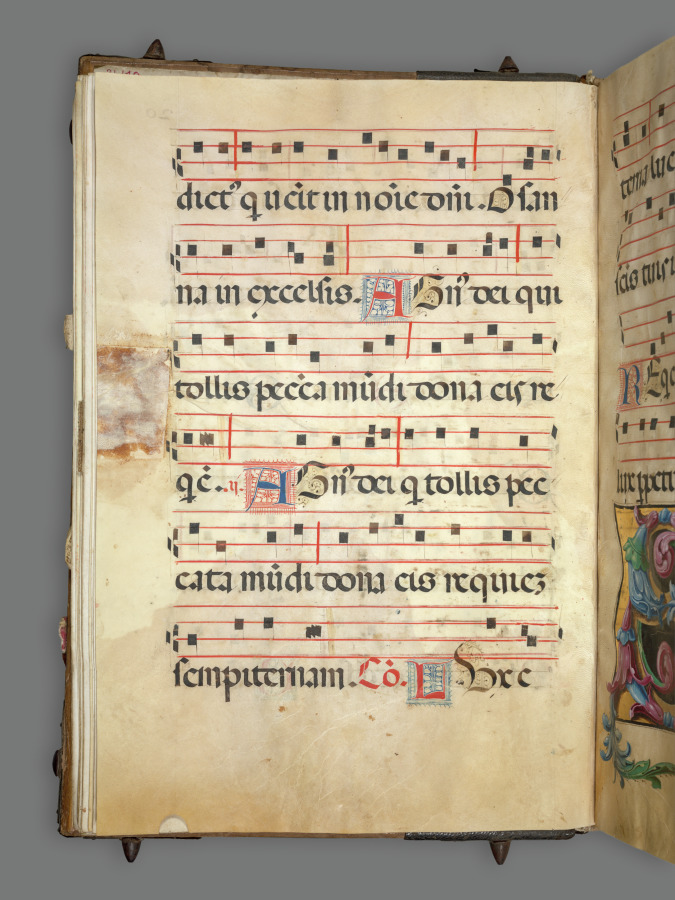 dict' q uēit in nōīe dn̄i. Osan
na in excelsis. AGn' dei qui
tollis pecc̄a mūdi dona eis re
q̄ē. .ij. AGn' dei q tollis pec
cata mūdi dona eis requiez
sempiternam. Cō. LUx e
terna luc
REqe